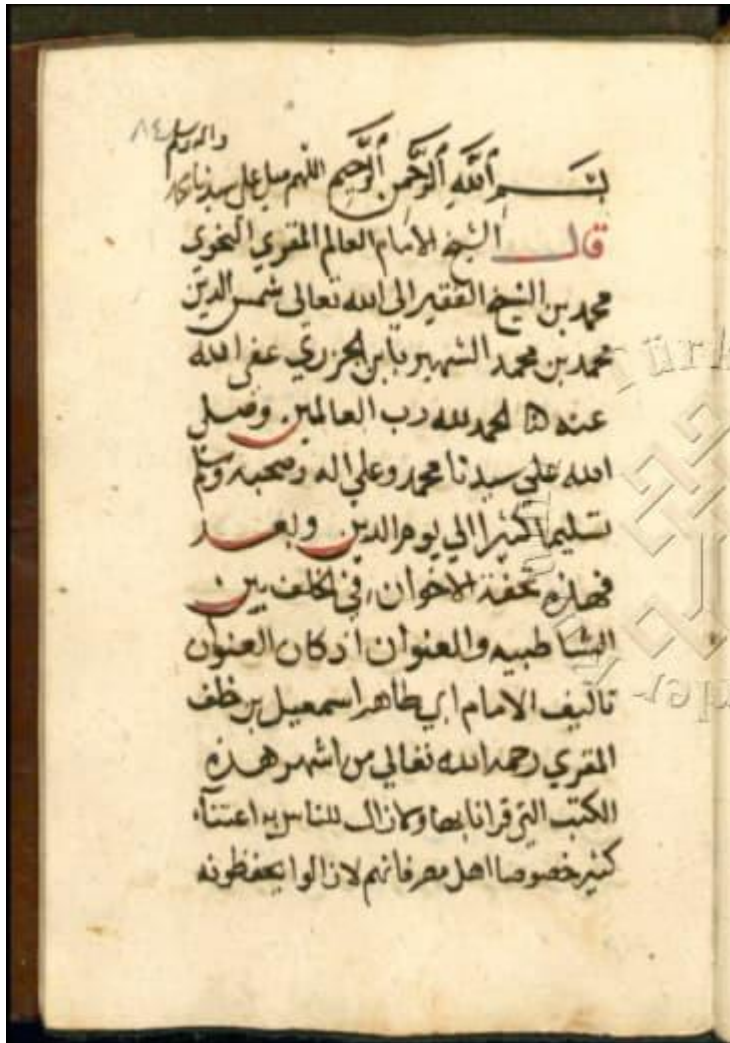 واله وسلم ٨٤
بسم الله الرحمن الرحيم اللهم صل على سيدنا محمد
قال الشيخ الامام العالم المقري النحوي
محمد بن الشيخ الفقير الي الله تعالى شمس الدين
محمد بن محمد الشهير بابن الجزري عفى الله
عنه الحمد لله رب العالمين وصلى
الله علي سيدنا محمد وعلي اله وصحبه وسلم
تسليما كثيرا الي يوم الدين وبعد
فهذه تحفة الاخوان في الخلف بين
الشاطبيه والعنوان اذ كان العنوان
تاليف الامام ابي طاهر اسمعيل بن خلف
المقري رحمه الله تعالي من اشهر هذه
الكتب التي قرانا بها وكان للناس به اعتناء
كثير خصوصا اهل مصر فانهم لازالوا يحفظونه
Türk